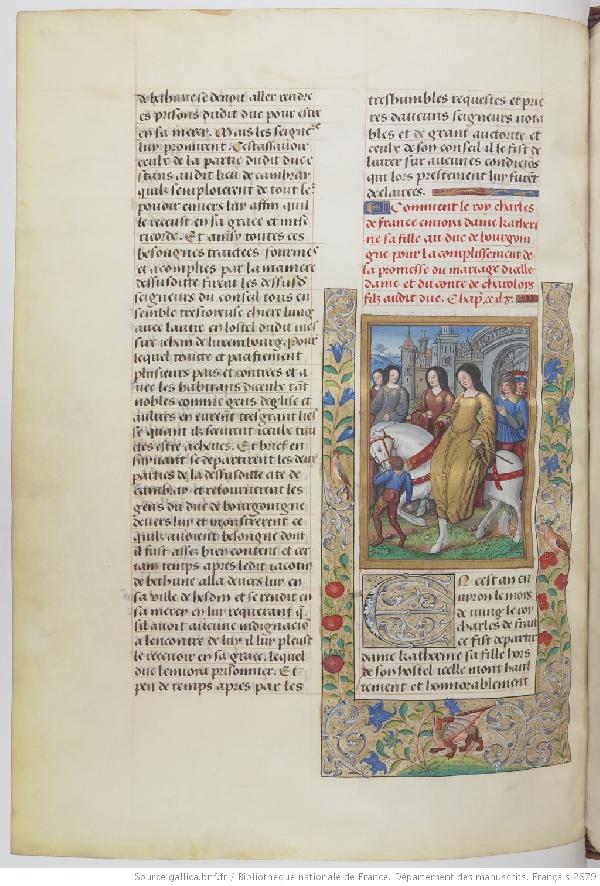 de bethune se devoit aller rendre
es prisons dudit duc pour estre
en sa mercy. Mais les seigne͛s
luy promirent. Cestassavoir
ceulx de la partie dudit duc e
stans audit lieu de cambray
quilz semploieroient de tout le͛
povoir envers luy affin quil
le receust en sa grace et mise
ricorde. Et ainsy toutes ces
besongnes traictees fourmees
et acomplies par la maniere
dessusditte furent les dessusds
seigneurs du conseil tous en
semble tresjoieuse chiere lung
avec lautre en lostel dudit mes
sire jehan de luxembourg. Pour
lequel traictie et pacifiement
plusieurs pais et contrees et a
vec les habitans diceulx tāt
nobles comme gens deglise et
aultres en eurent tresgrant lies
se quant ilz sceurent iceulx trai
cties estre acheves. Et brief en
suyvant se departirent les deux
parties de la dessusditte cite de
cambray et retournerent les
gens du duc de bourgongne
devers luy et monstrerent ce
quilz avoient besongne dont
il fust assez bien content et cer
tain temps apres ledit jacotin
de bethune alla devers luy en
sa ville de hesdin et se rendit en
sa mercy en luy requerant q̄
sil avoit aucune indignacio
a lencontre de luy il luy pleust
le recevoir en sa grace. lequel
duc le envoia prisonnier. Et
peu de temps apres par les
treshumbles requestes et prie
res daucuns seigneurs nota
bles et de grant auctorite et
ceulx de son conseil il le fist de
livrer sur aucunes condicios
qui lors prestement luy furēt
declairees.
Comment le roy charles
de france envoya dame katheri
ne sa fille au duc de bourgon
gne pour la complissement de
la promesse du mariage dicelle
dame et du conte de charolois
filz audit duc. Chap͛
En cest an en
viron le mois
de juing le roy
charles de fran
ce fist departir
dame katherine sa fille hors
de son hostel icelle mont haul
tement et honnorablement
Source gallica.bnf.fr / Bibliothèque nationale de France. Département des manuscrits. Français 2679